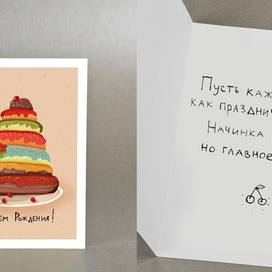 ем Рождения!
Пусть каж
как праздни
Начинка
но главное